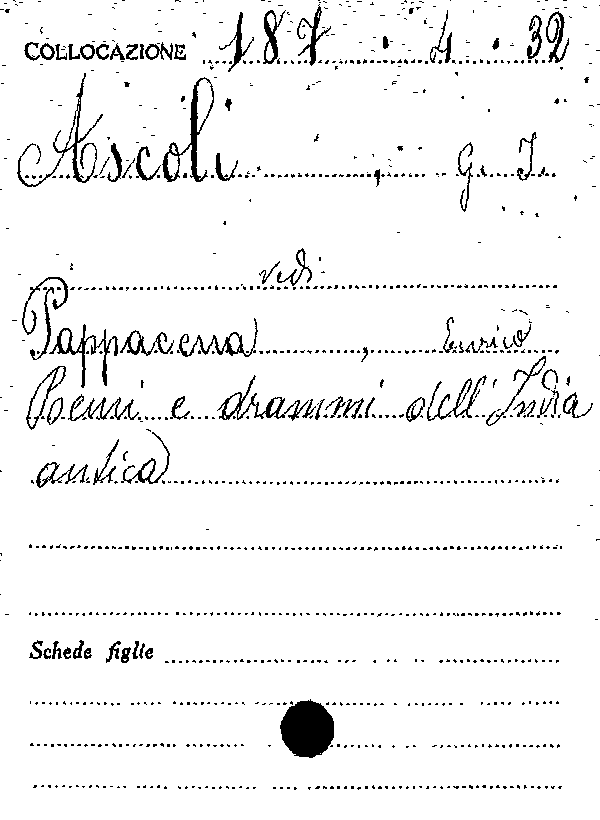 COLLOCAZIONE 187 . 4 . 32
Ascoli , G. I.
vedi
Pappacena , Enrico
Poemi e drammi dell'India
antica
Schede figlie